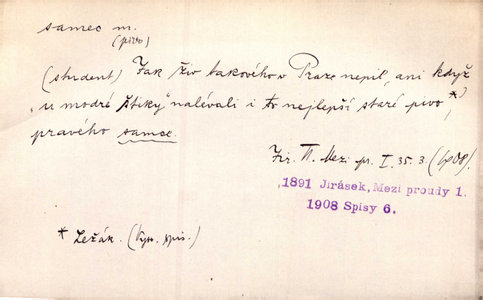 samec m.
(pivo)
(student) Jak živ takového v Praze nepil, ani když
„u modré štiky" nalévali i to nejlepší staré pivo, *)
pravého samce.
Jir. Mezi pr. I. 35. 3. (1908).
1891 Jirásek, Mezi proudy 1.
1908 Spisy 6.
* Ležák. (Vysv. spis.)